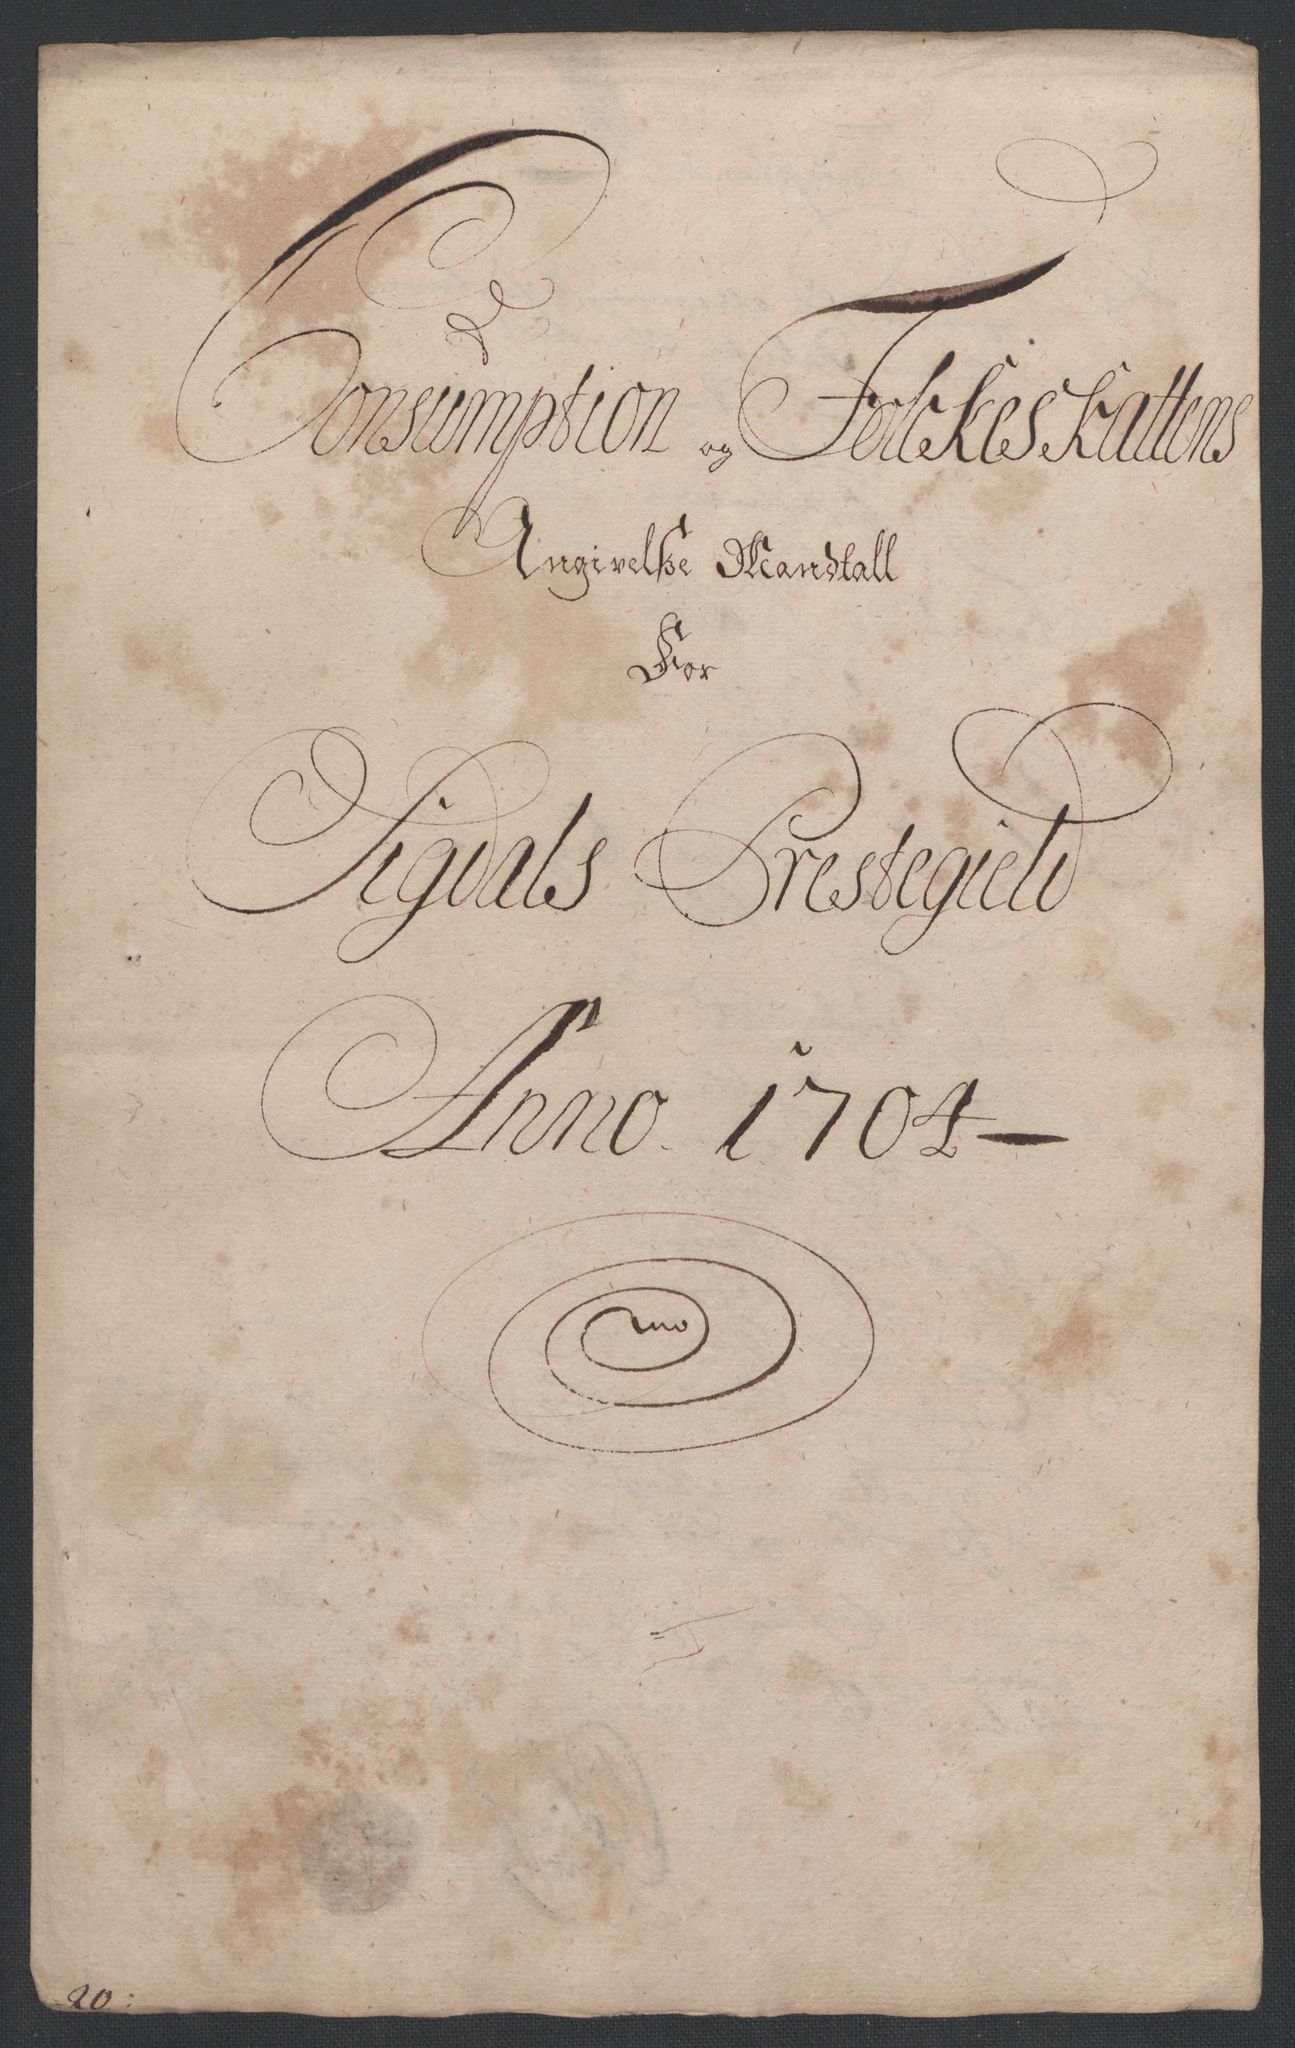 Consumption og Folckeskattens
Angivelse Mandtall
For
Sigdals Prestegield
Anno. 1704
20: